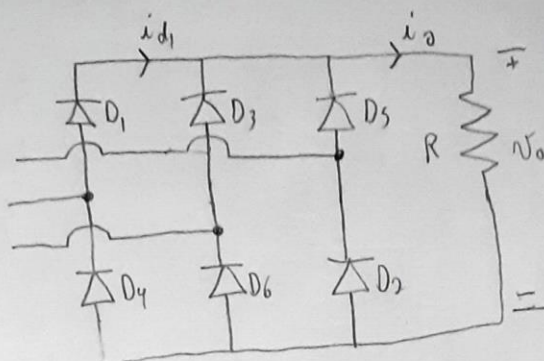 i_d1 i_o +
D1 D3 D5
R v_o
D4 D6 D2
−